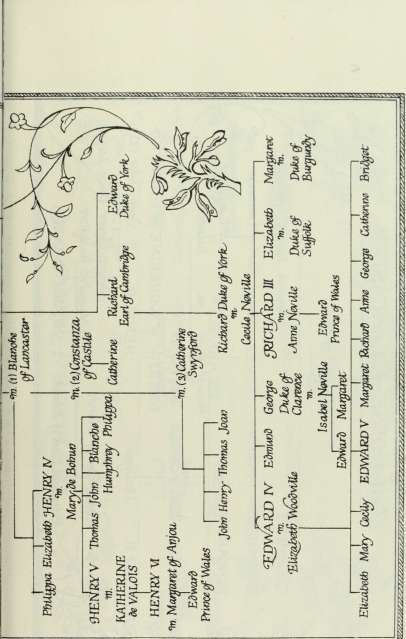 m. (1) Blanche
of Lancaster
Philippa Elizabeth HENRY IV
m.
Mary de Bohun
HENRY V Thomas John Blanche
Humphrey Philippa
m.
KATHERINE
de VALOIS
HENRY VI
m. Margaret of Anjou
Edward
Prince of Wales
m. (2) Constanza
of Castile
Catherine
m. (3) Catherine
Swynford
John Henry Thomas Joan
Richard
Earl of Cambridge
Edward
Duke of York
Richard Duke of York
m.
Cecile Neville
EDWARD IV
m.
Elizabeth Woodville
Edmund
George
Duke of
Clarence
m.
Isabel Neville
Edward Margaret
RICHARD III
m.
Anne Neville
Edward
Prince of Wales
Elizabeth
m.
Duke of
Suffolk
Margaret
m.
Duke of
Burgundy
Elizabeth Mary Cecily EDWARD V Margaret Richard Anne George Catherine Bridget